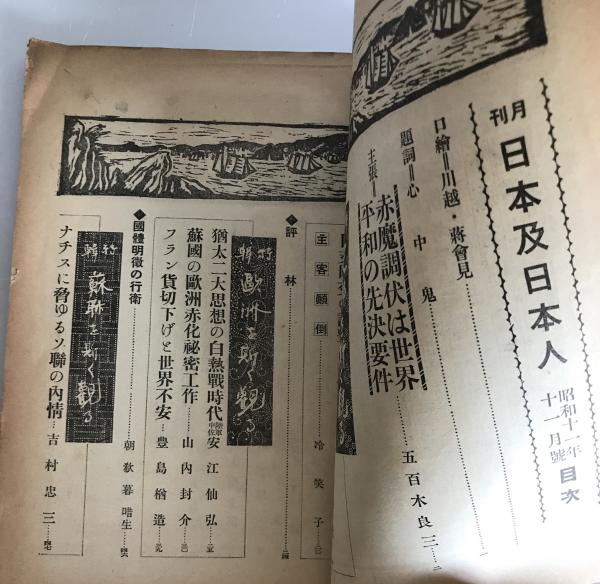 月刊 日本及日本人 昭和十一年十一月號 目次
口繪＝川越・蔣會見
題詞＝心中鬼
主張＝赤魔調伏は世界平和の先決要件 五百木良三
主客顚倒 冷笑子
評林
特輯 歐洲を斯く觀る
猶太二大思想の白熱戰時代 陸軍中佐 安江仙弘
蘇國の歐洲赤化祕密工作 山内封介
フラン貨切下げと世界不安 豊島楢造
國體明徵の行衞 朝歓暮啀生
特輯 蘇聯を斯く觀る
ナチスに脅ゆるソ聯の內情 吉村忠三